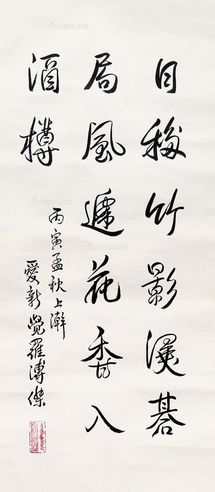 日移竹影侵碁
局風遞花香入
酒樽
丙寅孟秋上澣
愛新覺羅溥傑